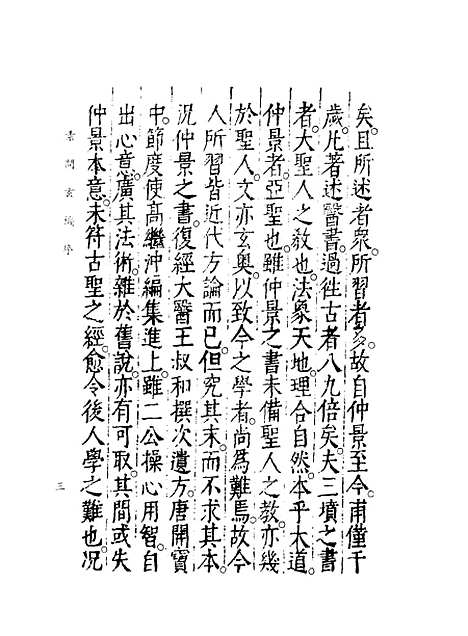 矣。且所述者衆。所習者多。故自仲景至今。甫僅千
歲。凡著述醫書。過徃古者八九倍矣。夫三墳之書
者。大聖人之教也。法象天地。理合自然。本乎大道。
仲景者。亞聖也。雖仲景之書未備聖人之教。亦幾
於聖人。文亦玄奧。以致今之學者。尚為難焉。故今
人所習皆近代方論而已。但究其末。而不求其本。
況仲景之書。復經大醫王叔和撰次遺方。唐開寶
中。節度使高繼沖編集進上。雖二公操心用智。自
出心意。廣其法術。雜於舊說。亦有可取。其間或失
仲景本意。未符古聖之經。愈令後人學之難也。况
素問玄機序
三